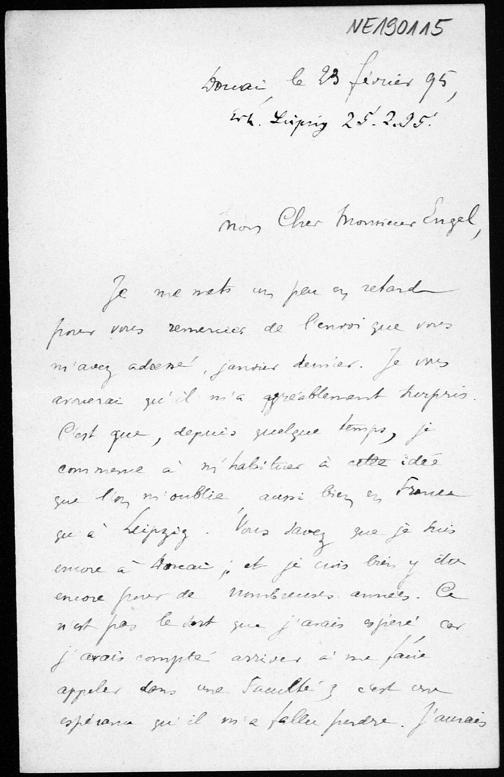 NE190115
Douai, le 23 février 95,
Erh. Leipzig 25.2.95.
mon Cher Monsieur Engel,
Je me mets un peu en retard
pour vous remercier de l'envoi que vous
m'avez adressé, janvier dernier. Je vous
avouerai qu'il m'a agréablement surpris.
C'est que, depuis quelque temps, je
commence à m'habituer à cette idée
que l'on m'oublie aussi bien en France
qu'à Leipzig. Vous savez que je suis
encore à Douai ; et je crois bien y être
encore pour de nombreuses années. Ce
n'est pas le sort que j'avais espéré car
j'avais compté arriver à me faire
appeler dans une Faculté ; c'est une
espérance qu'il m'a fallu perdre. J'aurais